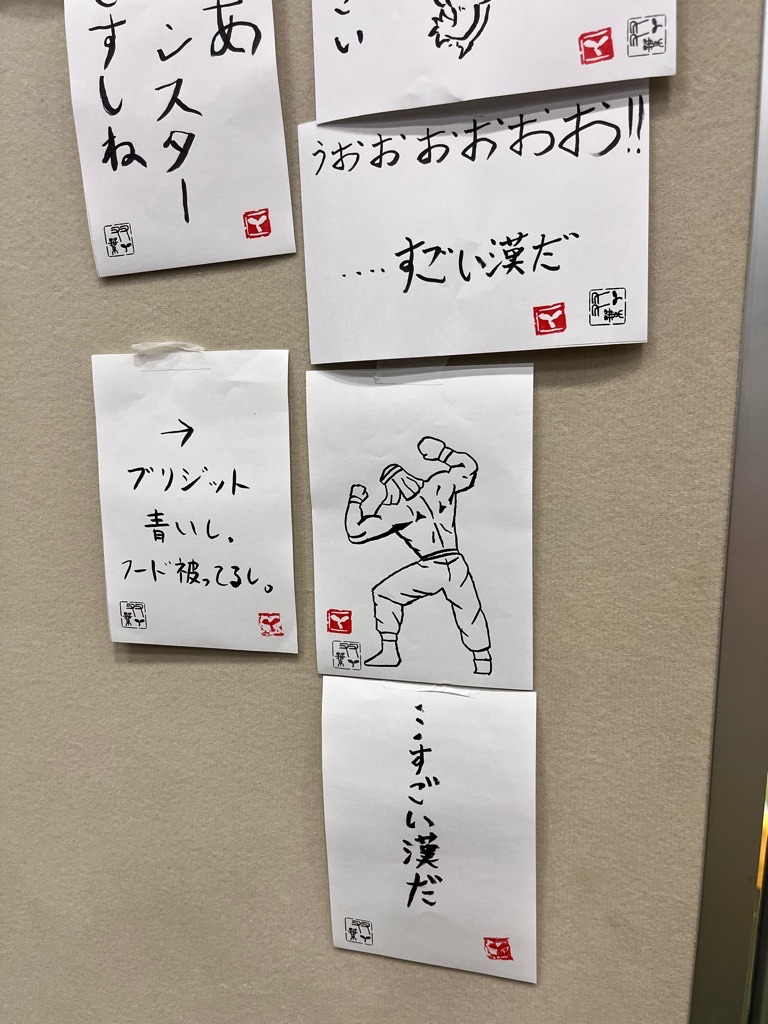 あ
ンスター
すしね
こい
うおおおおおお!!
....すごい漢だ
→
ブリジット
青いし。
フード被ってるし。
…すごい漢だ
双葉